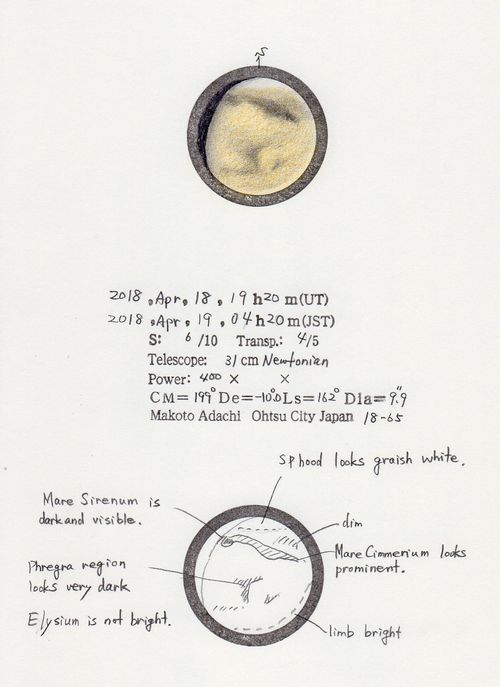 S
N
2018, Apr, 18, 19 h 20 m (UT)
2018, Apr, 19, 04 h 20 m (JST)
S: 6 /10 Transp.: 4/5
Telescope: 31 cm Newtonian
Power: 400 × ×
CM= 199° De= -10.°0 Ls= 162° Dia= 9."9
Makoto Adachi Ohtsu City Japan 18-65
SP hood looks graish white.
Mare Sirenum is
dark and visible.
dim
Mare Cimmerium looks
prominent.
Phregra region
looks very dark
Elysium is not bright.
limb bright